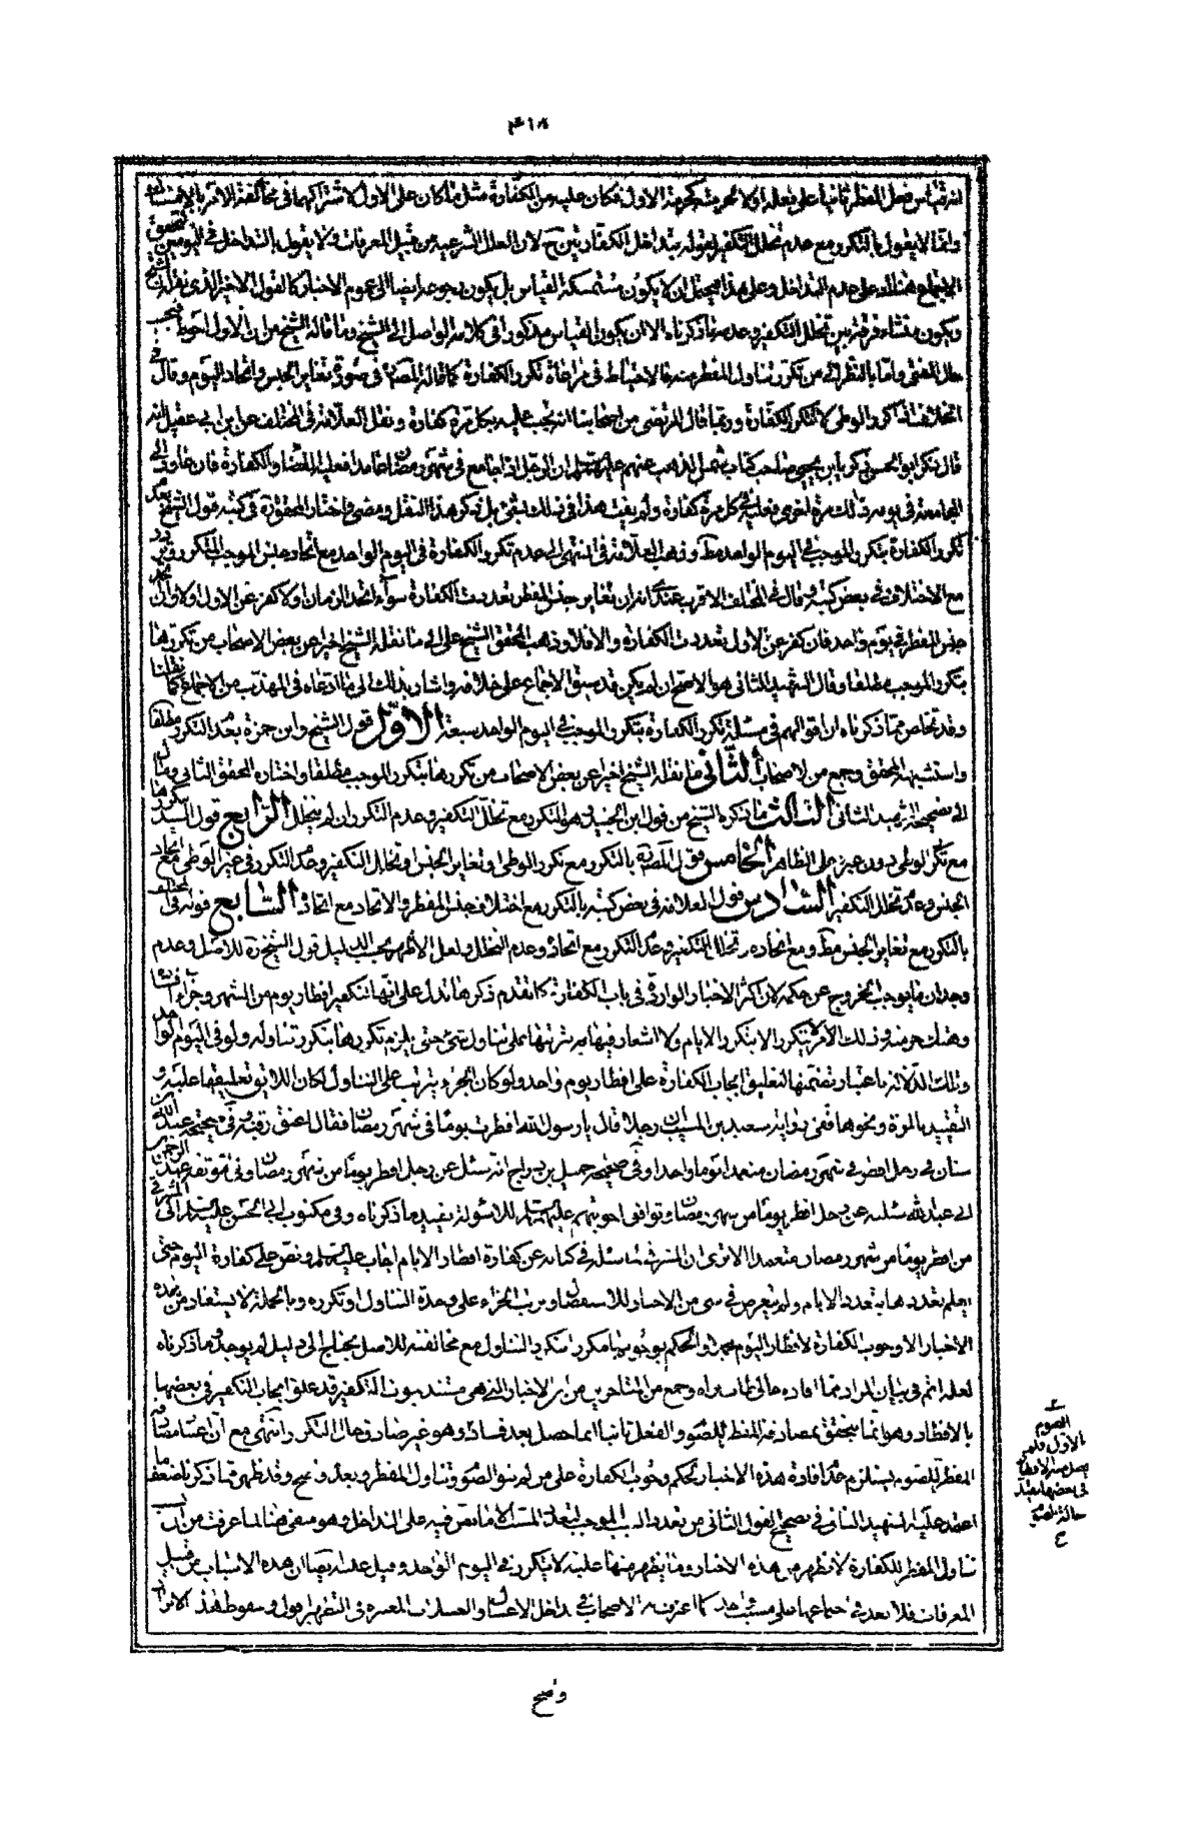 ٣١٨
انه قياس فعل المفطر ثانيا على فعله اولا لحرمته كحرمة الاول فكان عليه من الكفارة مثل ما كان على الاول لاشتراكهما في مخالفة الامر بالامساك
وانما لا يقول بالتكرر مع عدم تخلل التكفير لقوله بتداخل الكفارتين ح لان العلل الشرعية من قبيل المعرفات ولا يقول بالتداخل في اليومين لتحقق
الاجماع هنالك على عدم التداخل وعلى هذا فيحتمل ان لا يكون متمسكه القياس بل يكون رجوعه ايضا الى عموم الاخبار كالقول الاخير الذي نقله الشيخ
ويكون منشاء فرقه بين تخلل التكفير وعدمه ما ذكرناه الا ان يكون القياس مذكورا في كلامه الواصل الى الشيخ وما قاله الشيخ من ان الاول احوط فبحسب
حال المفتي واما بالنظر الى من تكرر تناول المفطر منه فالاحتياط في مراعاة تكرر الكفارة كما قاله المصنف في صورة تغاير الجنس واتحاد اليوم وقال في
الخلاف اذا كرر الوطي لا تتكرر الكفارة وربما قال المرتضى من اصحابنا انه يجب عليه بكل مرة كفارة ونقل العلامة في المختلف عن ابن ابي عقيل انه
قال ذكر ابو الحسن زكريا بن يحيى صاحب كتاب شمس المذهب عنهم عليهم السلام ان الرجل اذا جامع في شهر رمضان عامدا فعليه القضاء والكفارة فان عاود الى
المجامعة في يومه ذلك مرة اخرى فعليه في كل مرة كفارة ولم يفت هذا في ذلك بشئ بل ذكر هذا النقل ومضى واختار المحقق في كتبه قول الشيخ بعدم
تكرر الكفارة بتكرر الموجب في اليوم الواحد مط وذهب العلامة في المنتهى الى عدم تكرر الكفارة في اليوم الواحد مع اتحاد جنس الموجب المتكرر وتردد
مع الاختلاف في بعض كتبه وقال في المختلف الاقرب عندي انه ان تغاير جنس المفطر تعددت الكفارة سواء اتحد الزمان او لا كفر عن الاول او لا وان اتحد
جنس المفطر في يوم واحد فان كفر عن الاول تعددت الكفارة والا فلا وذهب المحقق الشيخ علي الى ما نقله الشيخ اخيرا عن بعض الاصحاب من تكررها
بتكرر الموجب مطلقا وقال الشهيد الثاني هو الاصح ان لم يكن قد سبق الاجماع على خلافه واشار بذلك الى ما ادعاه في المهذب من الاجماع كما نقلنا
وقد تخلص مما ذكرناه ان اقوالهم في مسئلة تكرر الكفارة بتكرر الموجب في اليوم الواحد سبعة الاول قول الشيخ وابن حمزة بعدم التكرر مطلقا
واستشبهه المحقق وجمع من الاصحاب الثاني ما نقله الشيخ اخيرا عن بعض الاصحاب من تكررها بتكرر الموجب مطلقا واختاره المحقق الثاني ومال
الى تصحيحه الشهيد الثاني الثالث ما ذكره الشيخ من قول ابن الجنيد وهو التكرر مع تخلل التكفير وعدم التكرر ان لم يتخلل الرابع قول السيد بتكررها
مع تكرر الوطي دون غيره على الظاهر الخامس قول المصنف بالتكرر مع تكرر الوطي او تغاير الجنس او تخلل التكفير وعدم التكرر في غير الوطي مع اتحاد
الجنس وعدم تخلل التكفير السادس قول العلامة في بعض كتبه بالتكرر مع اختلاف جنس المفطر والاتحاد مع اتحاده السابع قوله في المختلف
بالتكرر مع تغاير الجنس مط ومع اتحاده وتخلل التكفير وعدم التكرر مع اتحاده وعدم التخلل ولعل الاظهر بحسب الدليل قول الشيخ ره للاصل وعدم
وجدان ما يوجب الخروج عن حكمه لان اكثر الاخبار الواردة في باب الكفارة كما تقدم ذكرها تدل على انها تكفير افطار يوم من الشهر وجزاء افساده
وهتك حرمته وذلك الامر لا يتكرر الا بتكرر الايام ولا اشعار فيها بترتبها على تناول شئ حتى يلزم تكررها بتكرر تناوله ولو في اليوم الواحد
وتلك الدلالة باعتبار تضمنها لتعليق ايجاب الكفارة على افطار يوم واحد ولو كان الجزاء يترتب على التناول لكان اللائق تعليقها عليه و
التقييد بالمرة ونحوها ففي رواية سعيد بن المسيب ان رجلا قال يا رسول الله افطرت يوما في شهر رمضان فقال اعتق رقبة وفي صحيحة عبد الله بن
سنان في رجل افطر في شهر رمضان متعمدا يوما واحدا وفي صحيحة جميل بن دراج انه سئل عن رجل افطر يوما من شهر رمضان وفي موثقة عبد الرحمن بن
ابي عبد الله سئلته عن رجل افطر يوما من شهر رمضان وتوافق اجوبتهم عليهم السلام للاسولة يفيد ما ذكرناه وفي مكتوب ابي الحسن عليه السلام الى المشرقي
من افطر يوما من شهر رمضان متعمدا الا ترى ان المشرقي لما سئله في كتابه عن كفارة افطار الايام اجاب عليه السلام ونص على كفارة اليوم حتى
يعلم تعددها بتعدد الايام ولم يتعرض في شئ من الاخبار للاستفصال وترتب الجزاء على وحدة التناول او تكرره وبالجملة لا يستفاد من هذه
الاخبار الا وجوب الكفارة لافطار اليوم والحكم بوجوبها مكررا بتكرر التناول مع مخالفته للاصل يحتاج الى دليل لم يوجد وما ذكرناه
لعله اتم في بيان المراد مما افاده وجمع من المتاخرين من ان الاخبار التي هي مستند ثبوت التكفير قد علق ايجاب التكفير في بعضها
بالافطار وهو انما يتحقق بمصادفة المفطر للصوم والفعل ثانيا انما حصل بعد فساده وهو غير صادق حال التكرر انتهى مع ان اعتبار مصادفة
المفطر للصوم يستلزم عدم افادة هذه الاخبار لحكم وجوب الكفارة على من لم ينو الصوم وتناول المفطر وبعده واضح وقد ظهر مما ذكرنا ضعف ما
اعتمد عليه الشهيد الثاني في تصحيح القول الثاني من تعدد السبب الموجب لتعدد المسبب الا ما نص فيه على التداخل وهو منفي هنا لما عرفت من ان سبب
تناول المفطر للكفارة لا يظهر من هذه الاخبار وما يظهر منها عليته لا يتكرر في اليوم الواحد وميل عليه ايضا ان هذه الاسباب من قبيل
المعرفات فلا بعد في اجتماعها على مسبب واحد كما اعترف به الاصحاب في تداخل الاغسال والغسلات المعتبرة في التطهير قول وسقوط هذا الايراد
الصوم
الاول فلم
في بعضها
ع
وضح